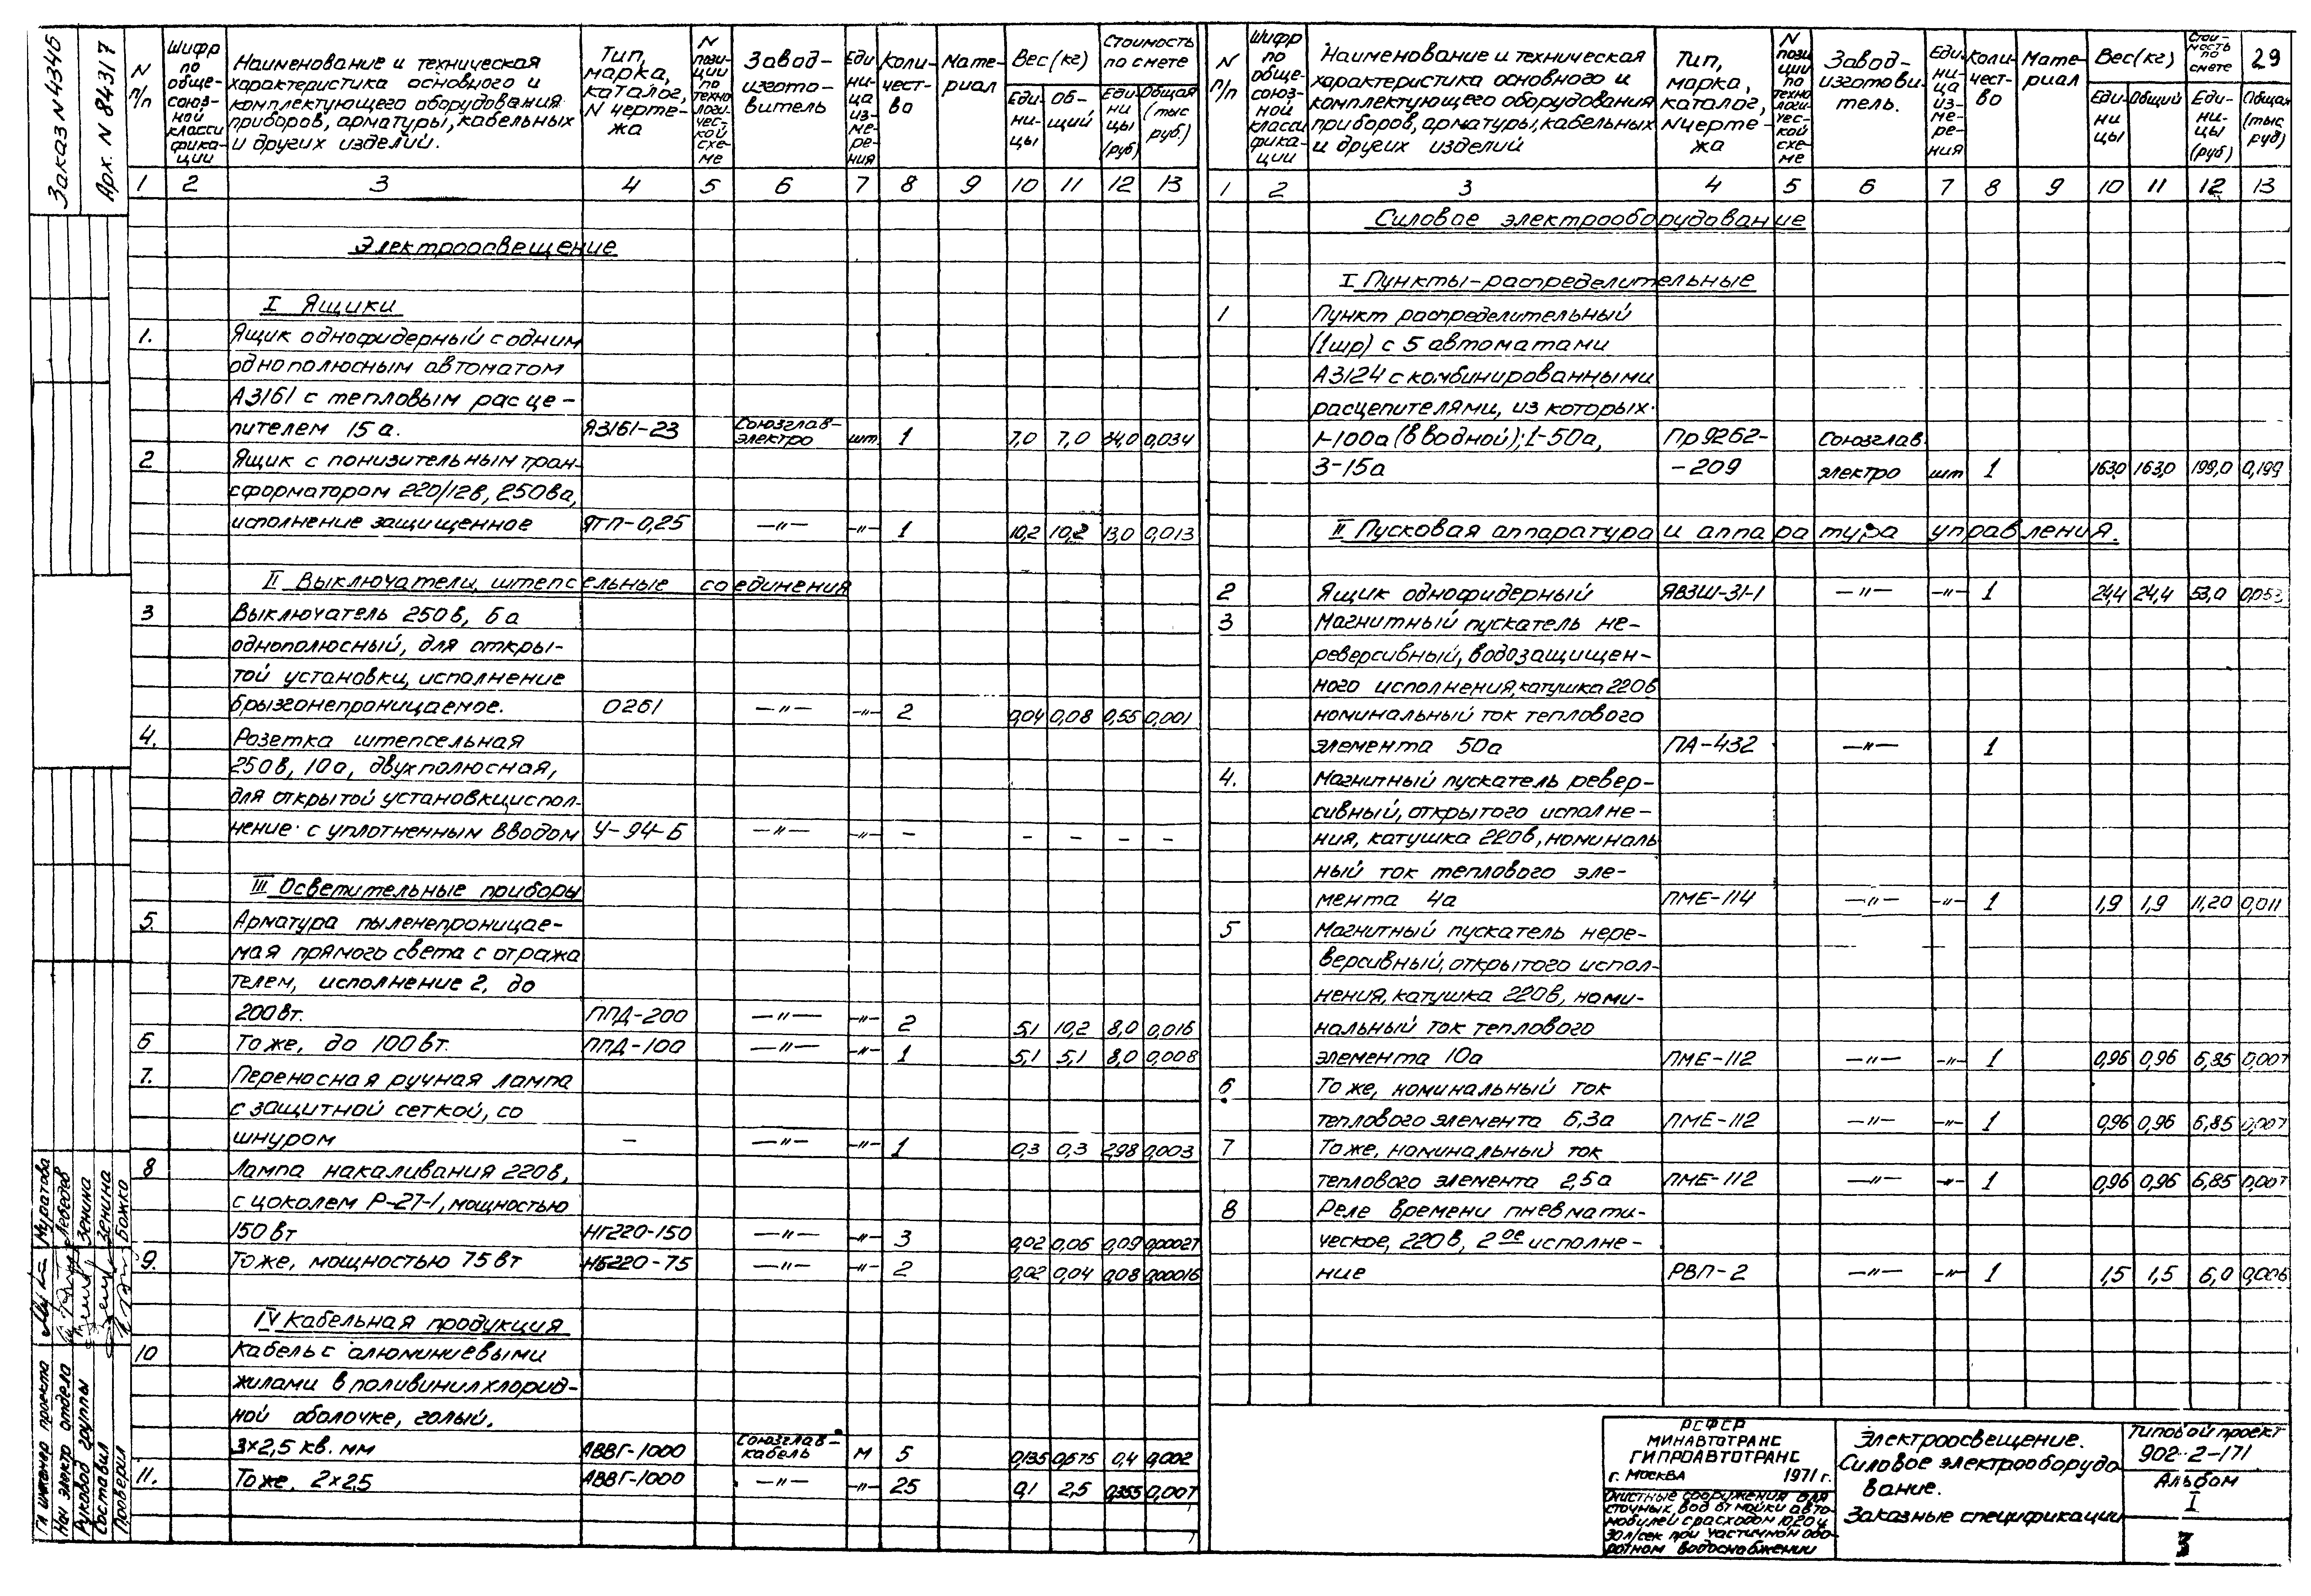 Заказ N 4346
Арх. N 84317
N п/п
Шифр по обще- союз- ной класси фика- ции
Наименование и техническая характеристика основного и комплектующего оборудования приборов, арматуры, кабельных и других изделий.
Тип, марка, каталог, N черте- жа
N пози- ции по техно логи- чес- кой схе- ме
Завод- изгото- витель
Еди ни- ца из- ме- ре- ния
Коли- чест- во
Мате- риал
Вес (кг)
Еди- ни- цы
Об- щий
Стоимость по смете
Еди- ни цы (руб)
Общая (тыс руб.)
1 2 3 4 5 6 7 8 9 10 11 12 13
Электроосвещение
I Ящики
1. Ящик однофидерный с одним
однополюсным автоматом
А3161 с тепловым расце-
пителем 15а. ЯЗ161-23 Союзглав- электро шт 1 7,0 7,0 34,0 0,034
2 Ящик с понизительным тран-
сформатором 220/12в, 250ва,
исполнение защищенное ЯТП-0,25 —"— -"- 1 10,2 10,2 13,0 0,013
II Выключатели, штепсельные соединения
3 Выключатель 250в, 6а
однополюсный, для откры-
той установки, исполнение
брызгонепроницаемое. 0261 —"— -"- 2 0,04 0,08 0,55 0,001
4. Розетка штепсельная
250в, 10а, двухполюсная,
для открытой установки, испол-
нение с уплотненным вводом У-94-Б —"— -"- - - - - -
III Осветительные приборы
5. Арматура пыленепроницае-
мая прямого света с отража
телем, исполнение 2, до
200вт. ППД-200 —"— -"- 2 5,1 10,2 8,0 0,016
6 То же, до 100вт. ППД-100 —"— -"- 1 5,1 5,1 8,0 0,008
7. Переносная ручная лампа
с защитной сеткой, со
шнуром - —"— -"- 1 0,3 0,3 2,98 0,003
8 Лампа накаливания 220в,
с цоколем Р-27-1, мощностью
150 вт НГ220-150 —"— -"- 3 0,02 0,06 0,09 0,00027
9. То же, мощностью 75 вт НБ220-75 —"— -"- 2 0,02 0,04 0,08 0,00016
IV Кабельная продукция
10 Кабель с алюминиевыми
жилами в поливинилхлорид-
ной оболочке, голый.
3×2,5 кв. мм АВВГ-1000 Союзглав- кабель М 5 0,135 0,675 0,4 0,002
11. То же, 2×2,5 АВВГ-1000 —"— -"- 25 0,1 2,5 0,355 0,007
N п/п
Шифр по обще- союз- ной класси фика- ции
Наименование и техническая характеристика основного и комплектующего оборудования приборов, арматуры, кабельных и других изделий
Тип, марка, каталог, N черте- жа
N пози ции по техно логи- чес- кой схе- ме
Завод- изготови- тель.
Еди- ни- ца из- ме- ре- ния
Коли- чест- во
Мате- риал
Вес (кг)
Еди- ни цы
Общий
Стои- мость по смете
Еди- ни- цы (руб)
29
Общая (тыс руб)
1 2 3 4 5 6 7 8 9 10 11 12 13
Силовое электрооборудование
I Пункты-распределительные
1 Пункт распределительный
(1шр) с 5 автоматами
А3124 с комбинированными
расцепителями, из которых
1-100а (вводной); 1-50а, Пр9262- Союзглав
3-15а -209 электро шт 1 163,0 163,0 199,0 0,199
II Пусковая аппаратура и аппаратура управления.
2 Ящик однофидерный ЯВЗШ-31-1 —"— -"- 1 24,4 24,4 53,0 0,053
3 Магнитный пускатель не-
реверсивный, водозащищен-
ного исполнения, катушка 220в
номинальный ток теплового
элемента 50а ПА-432 —"— 1
4. Магнитный пускатель ревер-
сивный, открытого исполне-
ния, катушка 220в, номиналь
ный ток теплового эле-
мента 4а ПМЕ-114 —"— -"- 1 1,9 1,9 11,20 0,011
5 Магнитный пускатель нере-
версивный, открытого испол-
нения, катушка 220в, номи-
нальный ток теплового
элемента 10а ПМЕ-112 —"— -"- 1 0,96 0,96 6,85 0,007
6 То же, номинальный ток
теплового элемента 6,3а ПМЕ-112 —"— -"- 1 0,96 0,96 6,85 0,007
7 То же, номинальный ток
теплового элемента 2,5а ПМЕ-112 —"— -"- 1 0,96 0,96 6,85 0,007
8 Реле времени пневмати-
ческое, 220в, 2ое исполне-
ние РВП-2 —"— -"- 1 1,5 1,5 6,0 0,006
Гл инженер проекта Муратова
Нач электр отдела Лебедев
Руковод группы Зенина
Составил Зенина
Проверил Божко
РСФСР
МИНАВТОТРАНС
ГИПРОАВТОТРАНС
г. Москва 1971 г.
Очистные сооружения для
сточных вод от мойки авто-
мобилей с расходом 10,20 и
30 л/сек при частичном обо-
ротном водоснабжении
Электроосвещение.
Силовое электрооборудо
вание.
Заказные спецификации
Типовой проект
902-2-171
Альбом
I
3